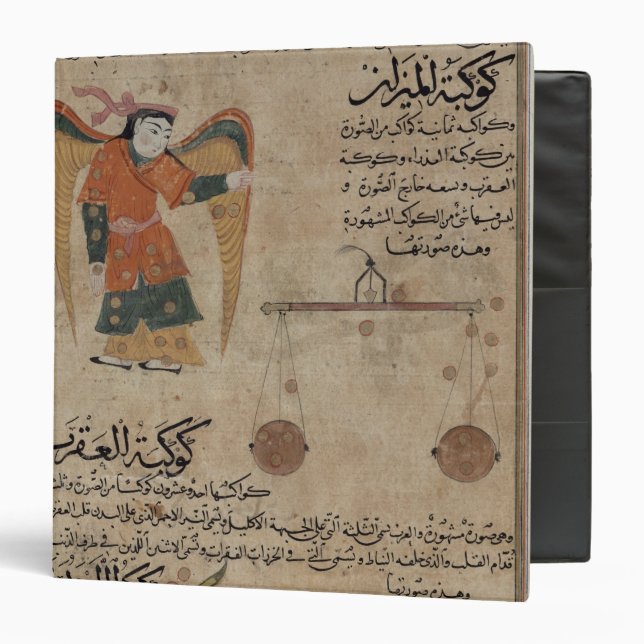 كوكبة الميزان
وكواكبه ثمانية كواكب من الصورة
بين كوكبة العذراء وكوكبة
العقرب وتسعة خارج الصورة و
ليس فيها شيء من الكواكب المشهورة
وهذه صورتها
كوكبة العقرب
كواكبها احد وعشرون كوكبا من الصورة وثلثة
وهي صورة مشهورة والعرب تسمي الثلثة التي على الجبهة الاكليل وتسمي النير الاحمر الذي على البدن قلب العقرب
قدام القلب والذي خلفه النياط وتسمي التي في الخرزات الفقرات وتسمي الاثنين اللذين في طرف الذنب
وهذه صورتها